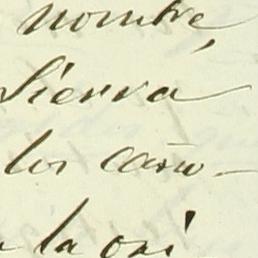 nombre
Sierra
los caño-
la ori